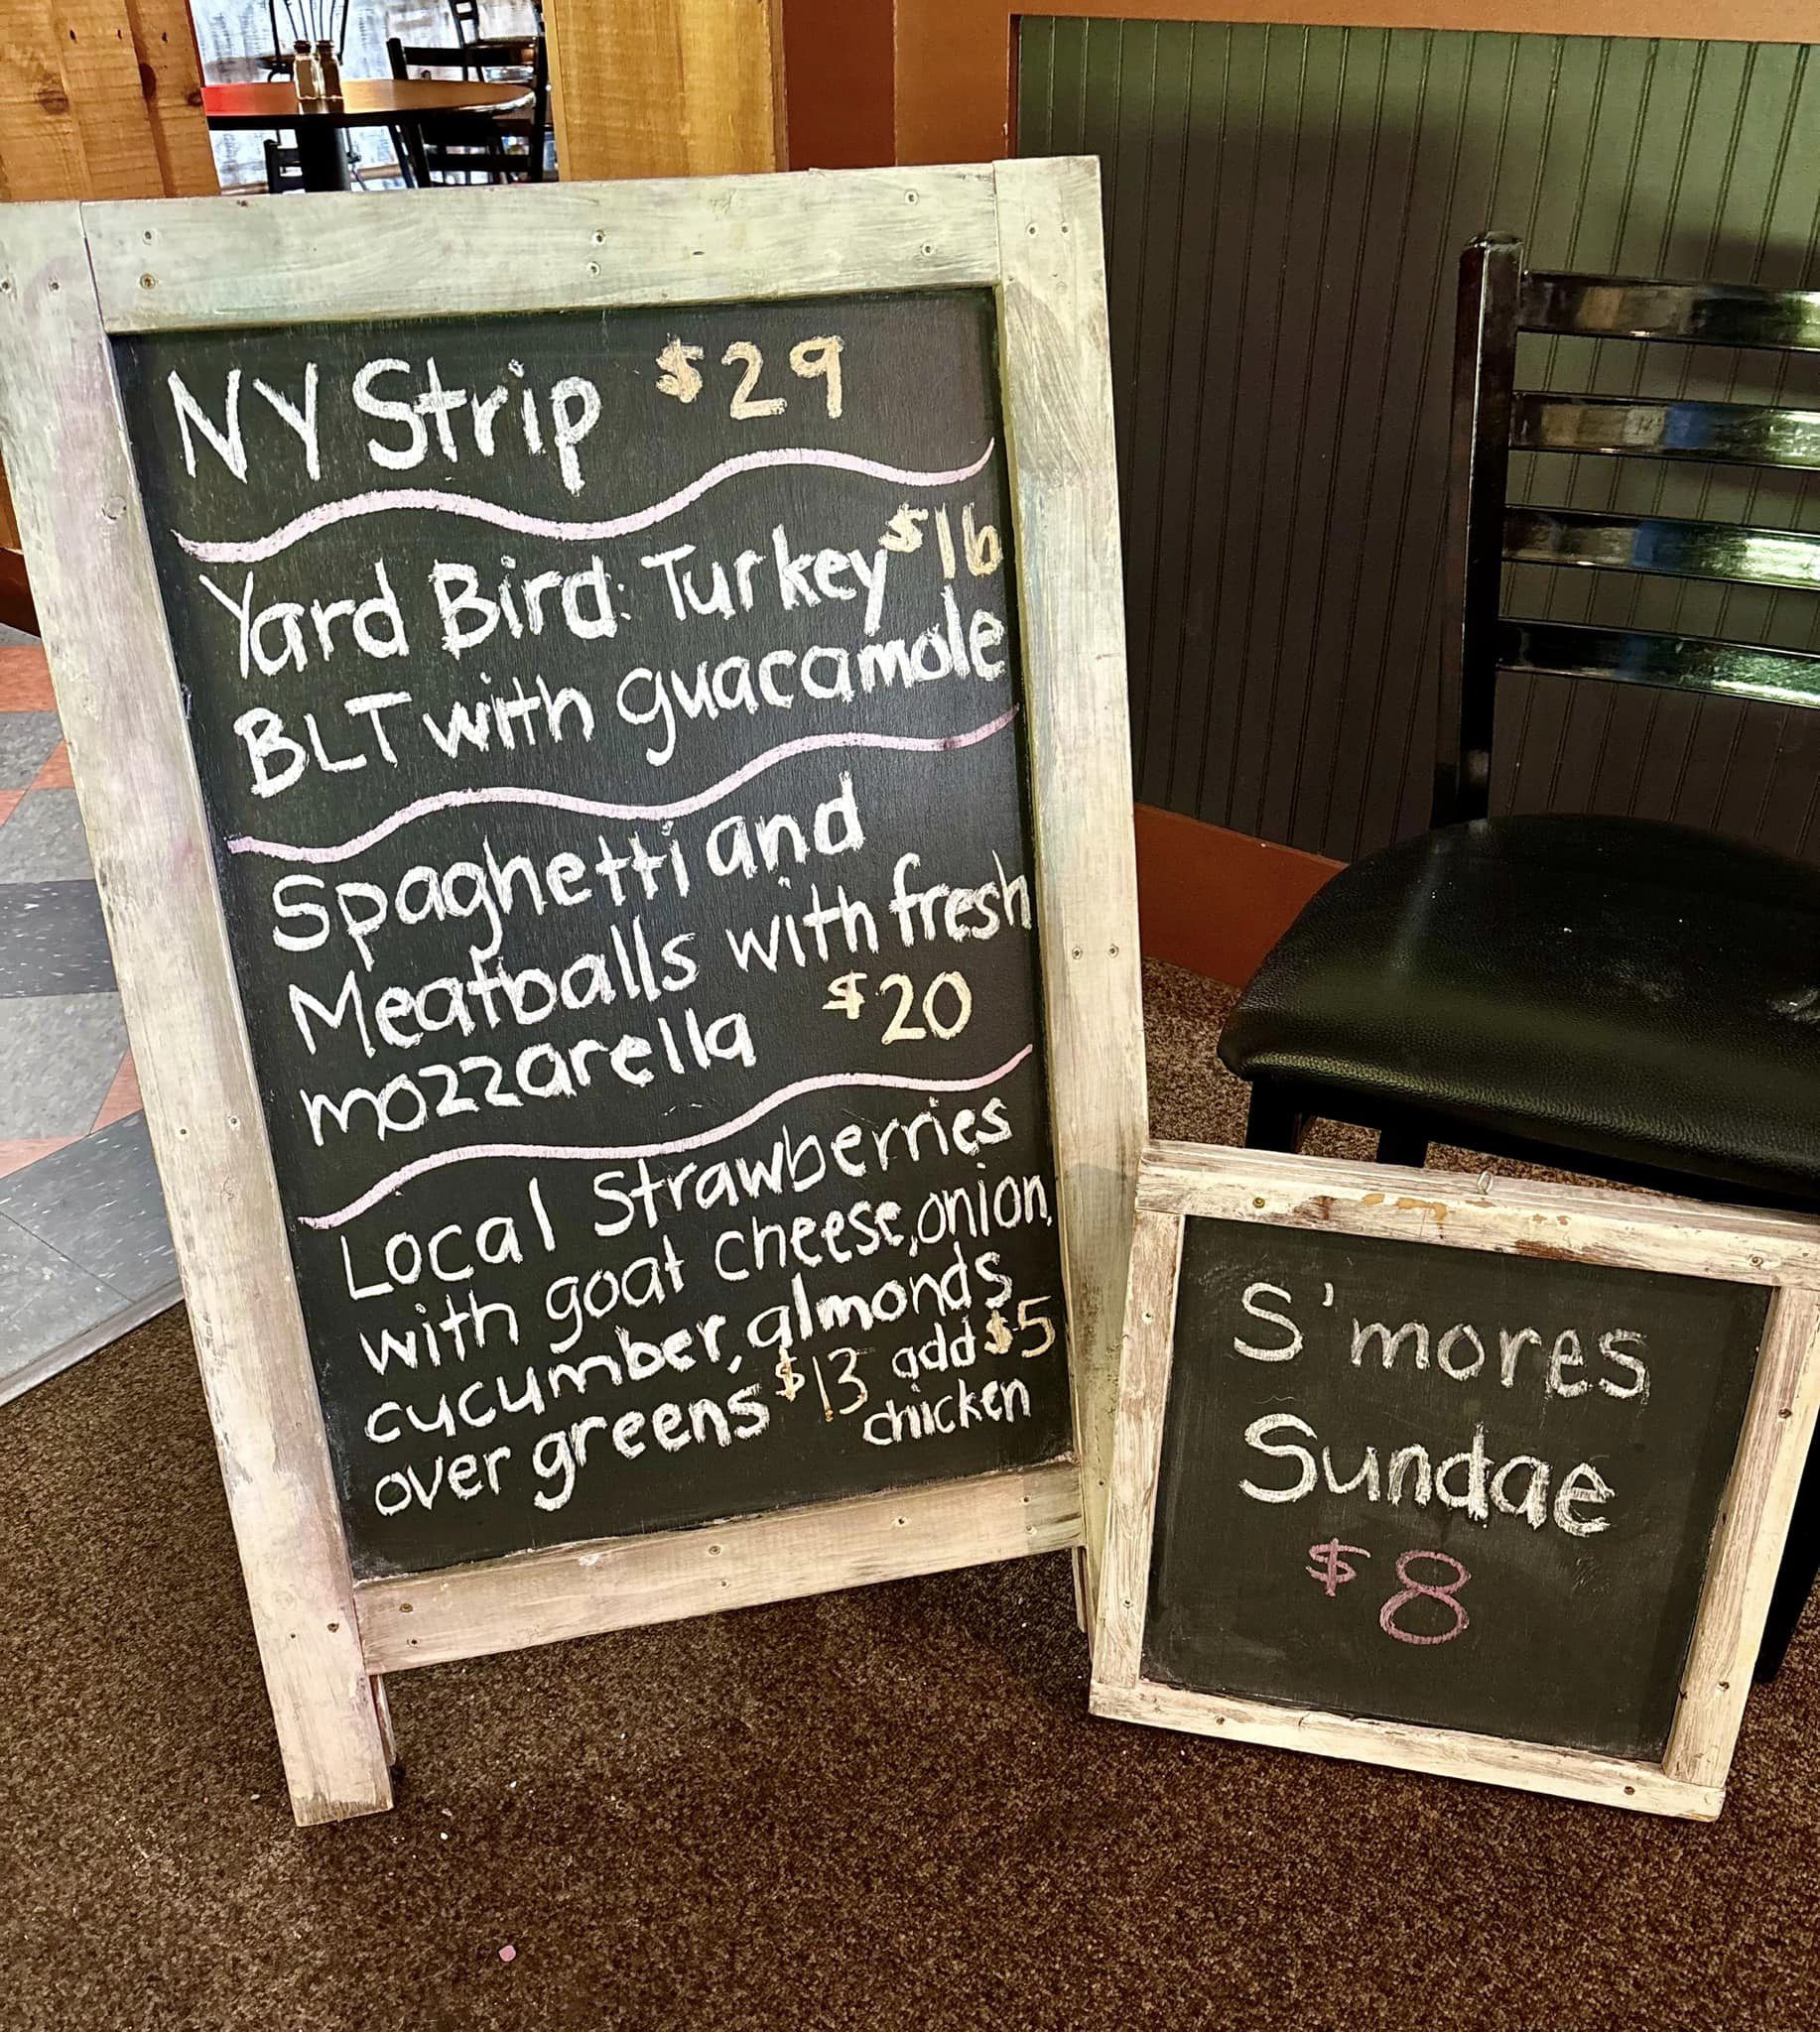 NY Strip $29
Yard Bird: Turkey $16
BLT with guacamole
Spaghetti and
Meatballs with fresh
mozzarella $20
Local Strawberries
with goat cheese, onion,
cucumber, almonds
over greens $13 add $5
chicken
S'mores
Sundae
$8